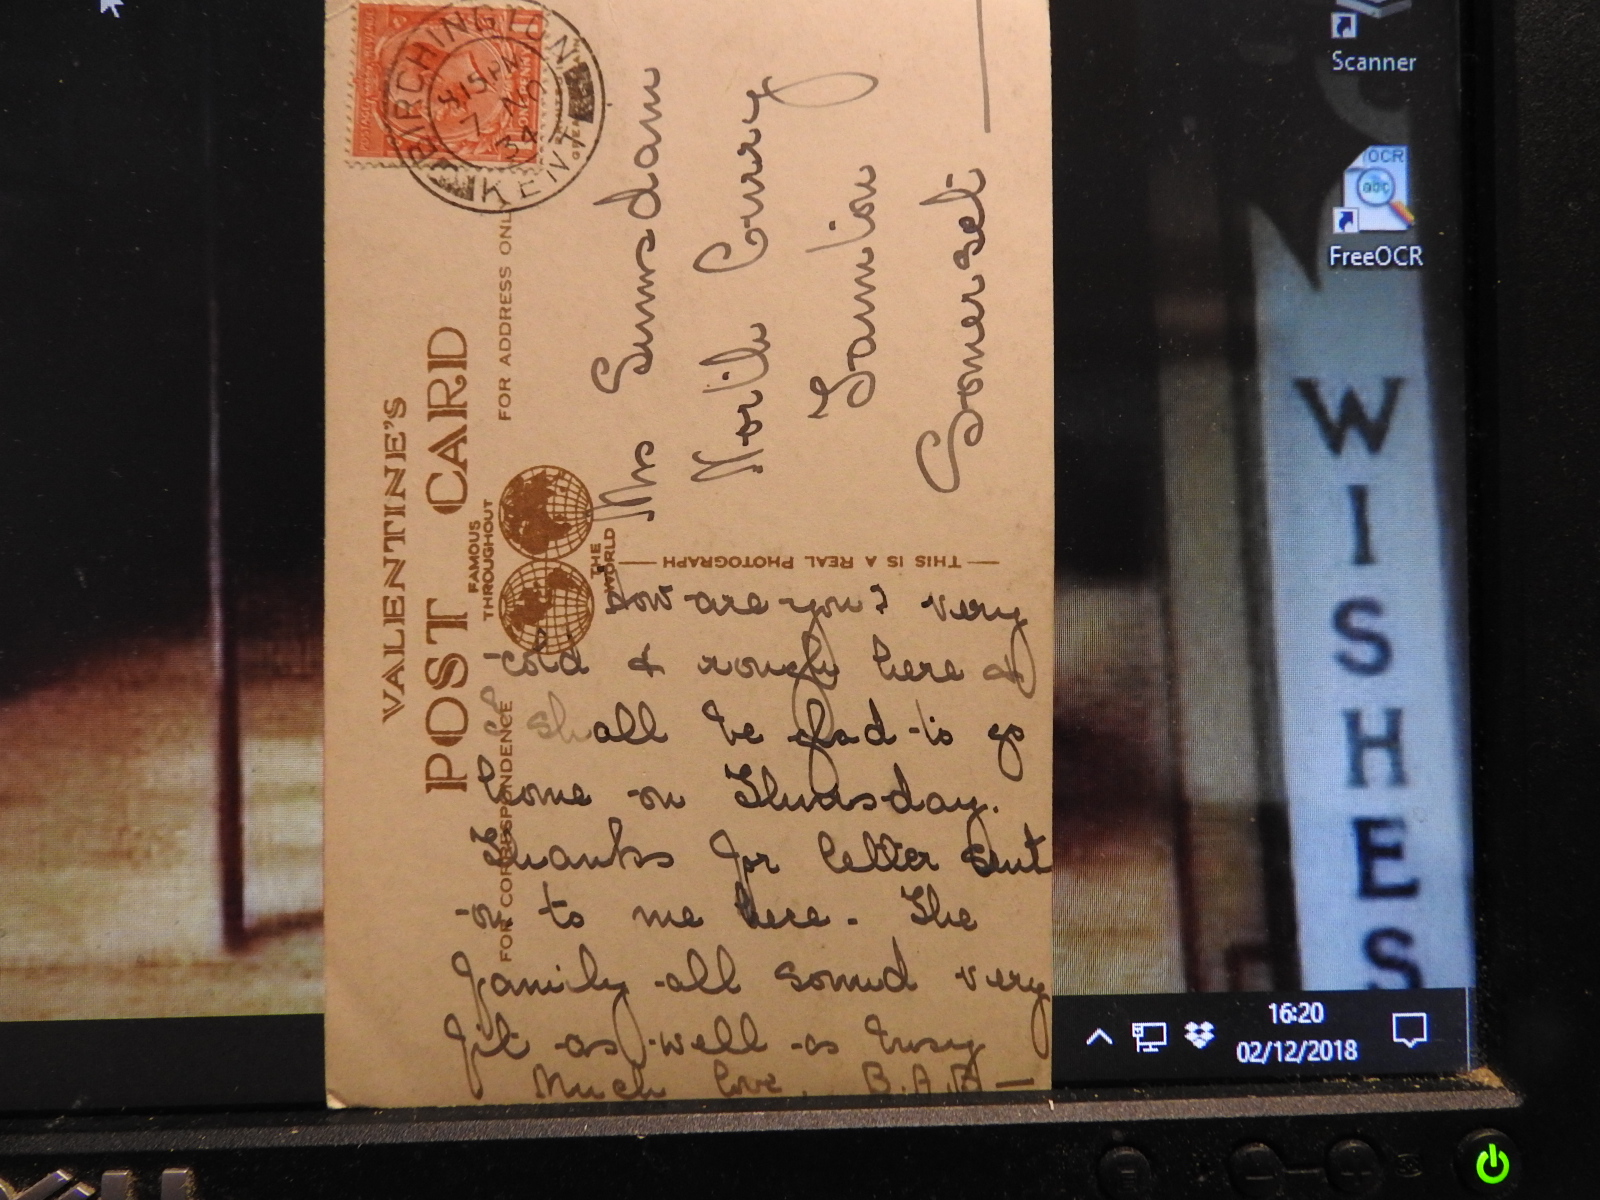 BIRCHINGTON
8.15 PM
7 NO
34
KENT
VALENTINE'S
POST CARD
FAMOUS
THROUGHOUT
THE
WORLD
FOR ADDRESS ONLY
FOR CORRESPONDENCE
THIS IS A REAL PHOTOGRAPH
Mrs
North Curry
Taunton
Somerset
How are you? very
cold & rough here &
I shall be glad to go
home on Thursday.
Thanks for letter sent
on to me here. The
family all sound very
fit as well as busy
Much love. B.A.B
Scanner
OCR
abc
FreeOCR
WISHES
16:20
02/12/2018